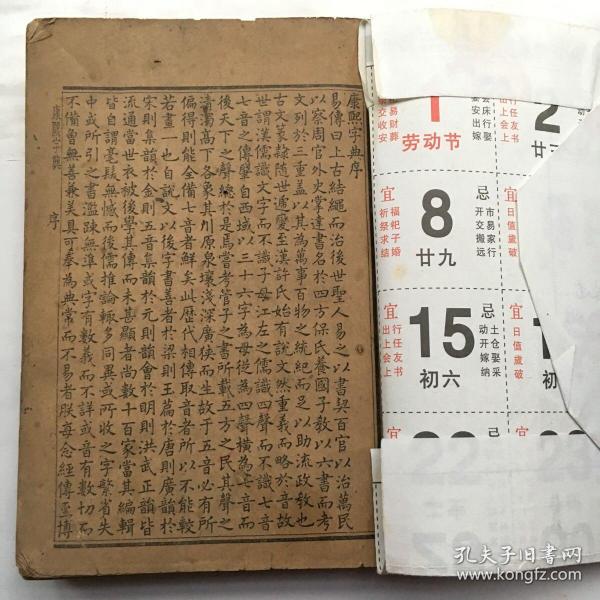 康熙字典序
易傳曰上古結繩而治後世聖人易之以書契百官以治萬民
以察周官外史掌達書名於四方保氏養國子教以六書而考
文列於三重蓋以其為萬事百物之統紀而足以助流政教也
古文篆隸隨世遞變至漢許氏始有說文然重義而略於音故
世謂漢儒識文字而不識子母江左之儒識四聲而不識七音
七音之傳肇自西域以三十六字為母從為四聲橫為七音而
後天下之聲總於是焉嘗考管子之書所載五方之民其聲之
清濁高下各象其川原泉壤淺深廣狹而生故于五音必有所
偏得則能全備七音者鮮矣此歷代相傳取音者所以不能較
若畫一也自說文以後字書善者於梁則玉篇於唐則廣韻於
宋則集韻於金則五音集韻於元則韻會於明則洪武正韻皆
流通當世衣被後學其傳而未甚顯者尚數十百家當其編輯
皆自謂毫髮無憾而後儒推論輒多同異或所收之字繁省失
中或所引之書濫疎無準或字有數義而不詳或音有數切而
不備曾無善兼美具可奉為典常而不易者朕每念經傳至博
康熙字典 序
1
劳动节
宜
祈祭求结
福祀子婚
8
忌
开交
市易
搬远
家行
廿九
宜
日值歲破
宜
出上会上
行任友书
15
忌
动开
土仓
嫁纳
娶采
初六
宜
日值歲破
初
孔夫子旧书网
www.kongfz.com